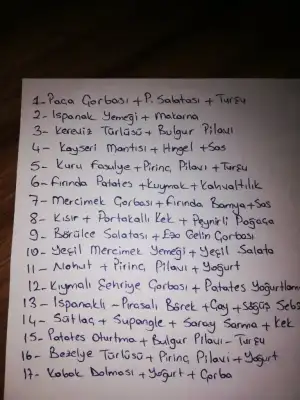 1- Paça Çorbası + P. Salatası + Turşu
2- Ispanak Yemeği + Makarna
3- Kereviz Türlüsü + Bulgur Pilavı
4- Kayseri Mantısı + Hingel + Sos
5- Kuru Fasulye + Pirinç Pilavı + Turşu
6- Fırında Patates + Kuymak + Kahvaltılık
7- Mercimek Çorbası + Fırında Bamya + Sos
8- Kısır + Portakallı Kek + Peynirli Poğaça
9- Börülce Salatası + Ezo Gelin Çorbası
10- Yeşil Mercimek Yemeği + Yeşil Salata
11- Nohut + Pirinç Pilavı + Yoğurt
12- Kıymalı Şehriye Çorbası + Patates Yoğurtlama
13- Ispanaklı - Pırasalı Börek + Çay + Söğüş Sebz
14- Sütlaç + Supangle + Saray Sarma + Kek
15- Patates Oturtma + Bulgur Pilavı - Turşu
16- Bezelye Türlüsü + Pirinç Pilavı + Yoğurt
17- Kabak Dolması + Yoğurt + Çorba